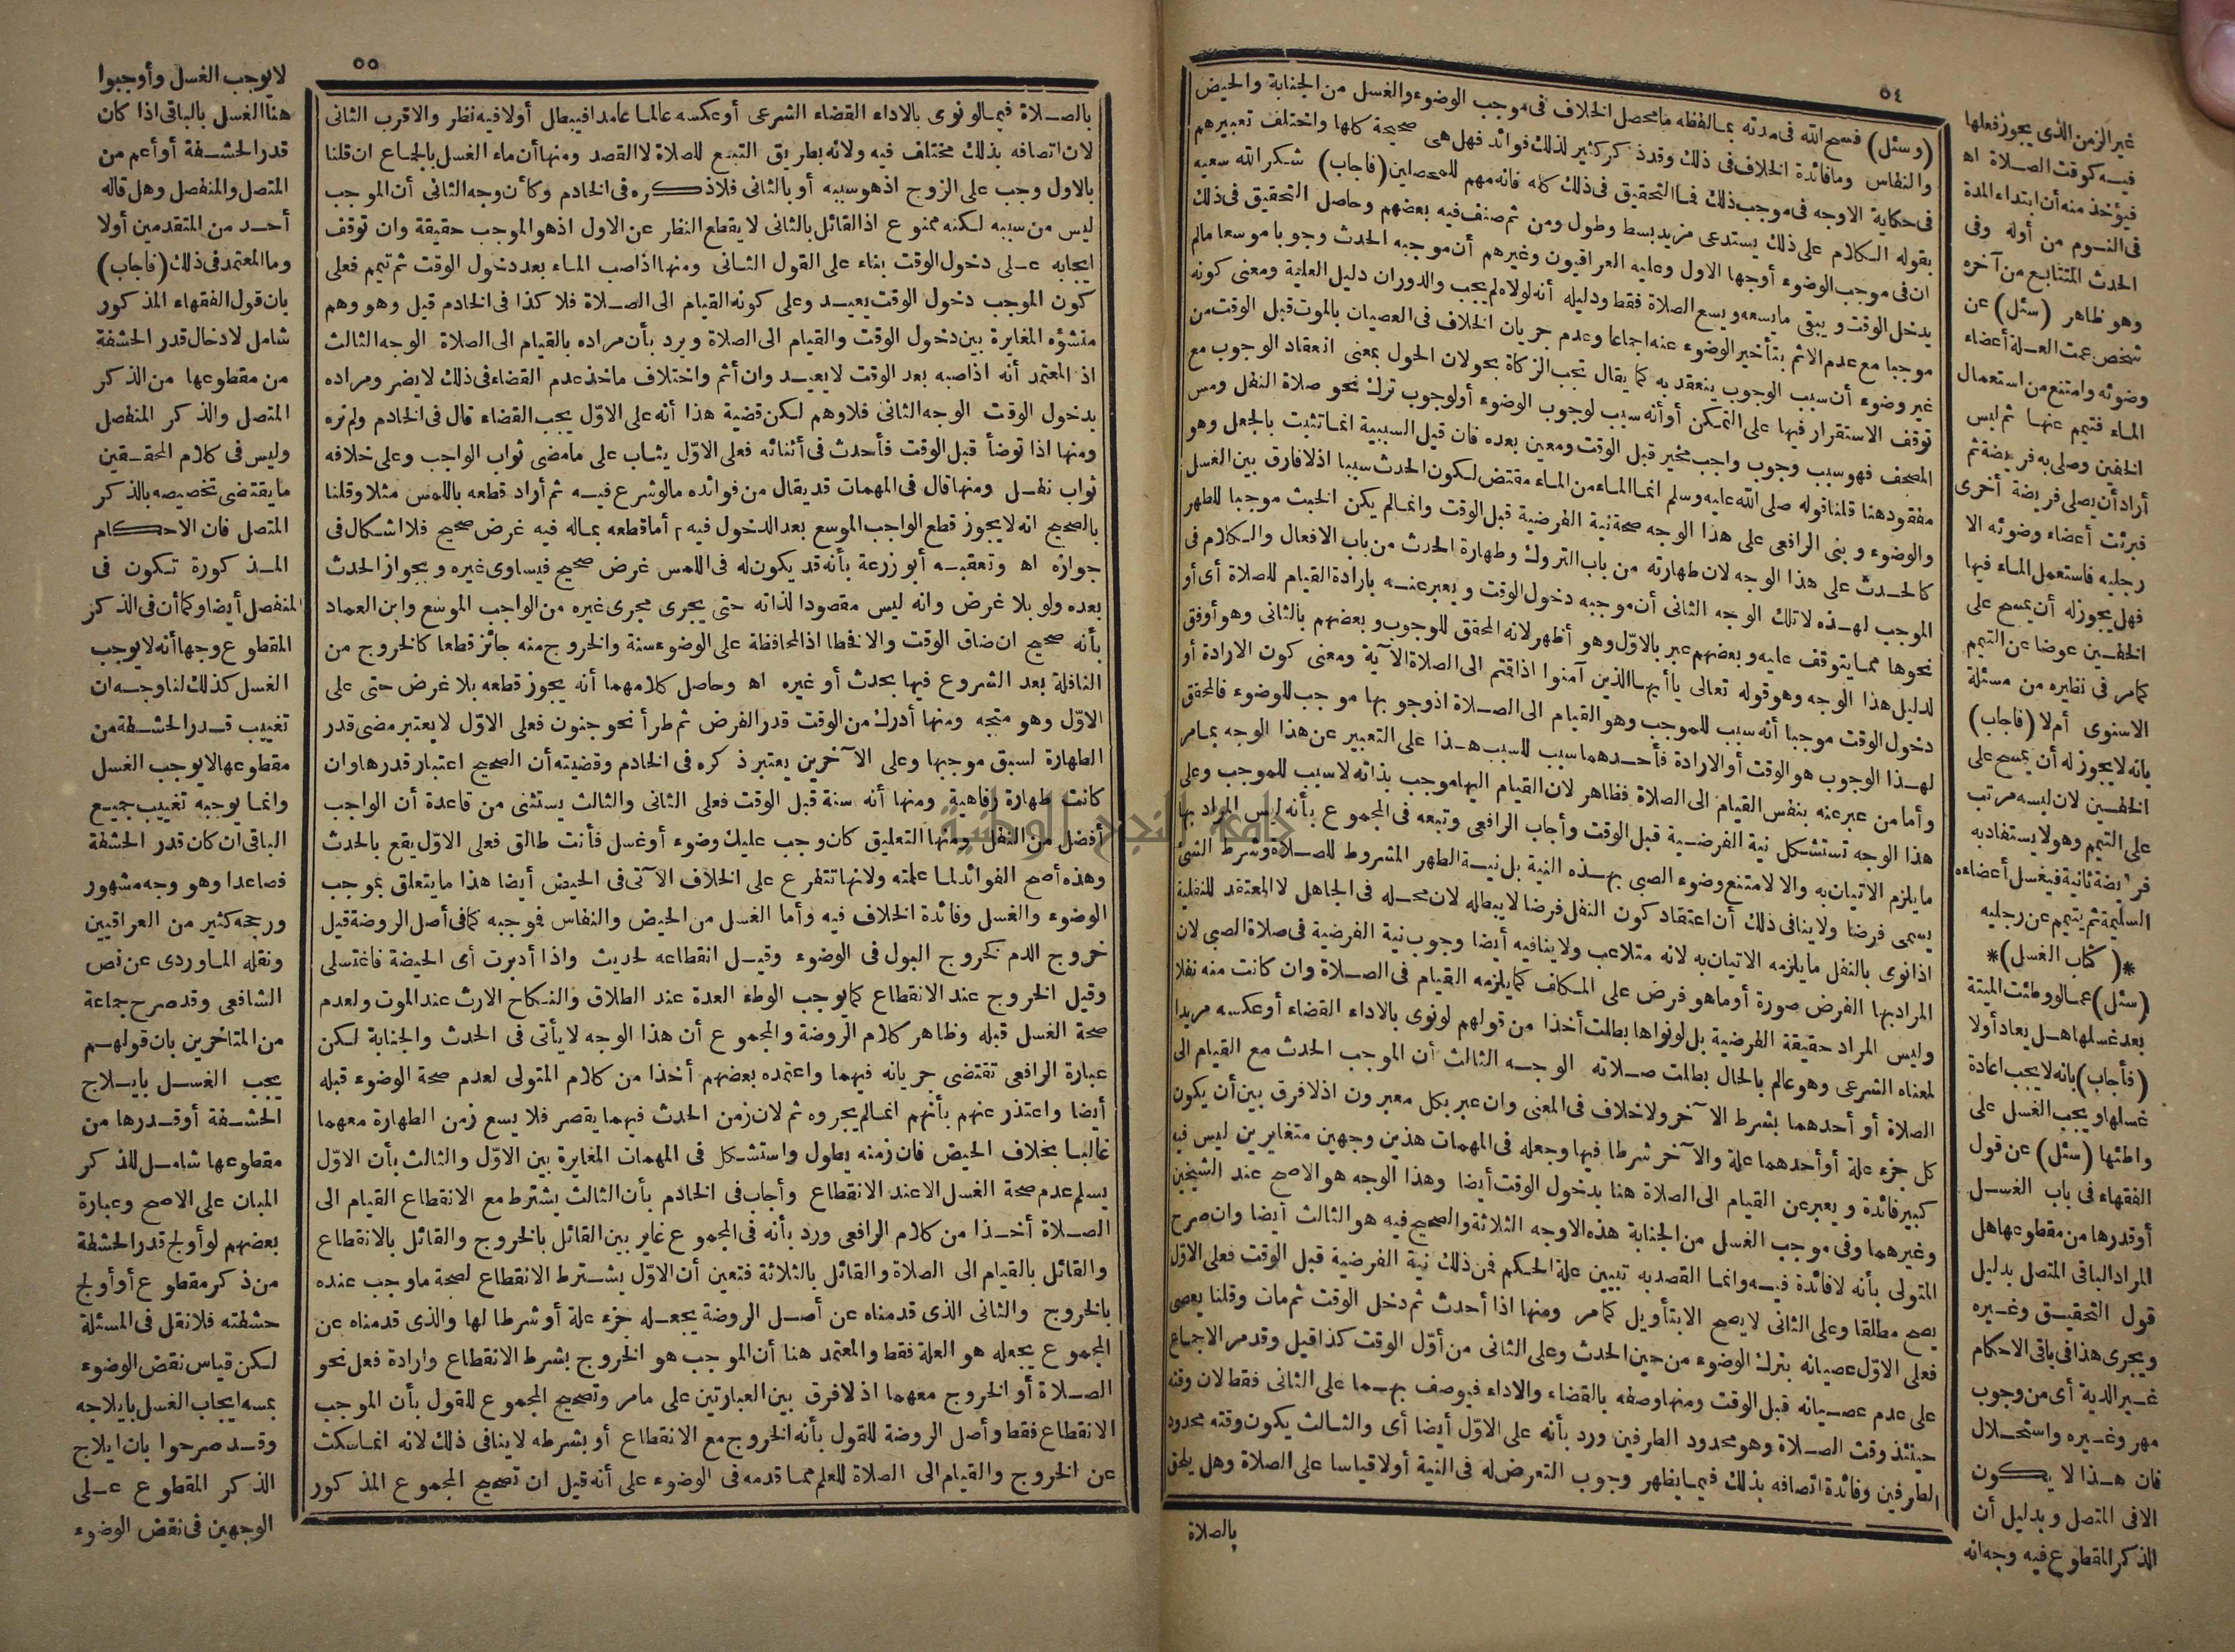 ٥٤
(وسئل) فسح الله فى مدته بما لفظه ما محصل الخلاف فى موجب الوضوء والغسل من الجنابة والحيض
والنفاس وما فائدة الخلاف فى ذلك وقد ذكر كثير لذلك فوائد فهل هى صحيحة كلها واختلف تعبيرهم
فى حكاية الاوجه فى موجب ذلك فما التحقيق فى ذلك كله فانه مهم للمحصلين (فاجاب) شكر الله سعيه
بقوله الكلام على ذلك يستدعى مزيد بسط وطول ومن ثم صنف فيه بعضهم وحاصل التحقيق فى ذلك
ان فى موجب الوضوء أوجها الاول وعليه العراقيون وغيرهم أن موجبه الحدث وجوبا موسعا مالم
يدخل الوقت ويبقى ما يسعه ويسع الصلاة فقط ودليله أنه لولاه لم يجب والدوران دليل العلية ومعنى كونه
موجبا مع عدم الاثم بتأخير الوضوء عنه اجماعا وعدم جريان الخلاف فى العصيان بالموت قبل الوقت من
غير وضوء أن سبب الوجوب ينعقد به كما يقال تجب الزكاة بحولان الحول بمعنى انعقاد الوجوب مع
توقف الاستقرار فيها على التمكن أو أنه سبب لوجوب الوضوء أولوجوب ترك نحو صلاة النفل ومس
المصحف فهو سبب وجوب واجب مخير قبل الوقت ومعين بعده فان قيل السببية انما تثبت بالجعل وهو
مفقود هنا قلنا قوله صلى الله عليه وسلم انما الماء من الماء مقتض لكون الحدث سببا اذ لا فارق بين الغسل
والوضوء وبنى الرافعى على هذا الوجه صحة نية الفرضية قبل الوقت وانما لم يكن الخبث موجبا للطهر
كالحدث على هذا الوجه لان طهارته من باب التروك وطهارة الحدث من باب الافعال والكلام فى
الموجب لهذه لا تلك الوجه الثانى أن موجبه دخول الوقت ويعبر عنه بارادة القيام للصلاة أى أو
نحوها مما يتوقف عليه وبعضهم عبر بالاوّل وهو أظهر لانه المحقق للوجوب وبعضهم بالثانى وهو أوفق
لدليل هذا الوجه وهو قوله تعالى يا أيها الذين آمنوا اذا قمتم الى الصلاة الآية ومعنى كون الارادة أو
دخول الوقت موجبا أنه سبب للموجب وهو القيام الى الصلاة اذ وجوبها موجب للوضوء فالمحقق
لهذا الوجوب هو الوقت أو الارادة فأحدهما سبب للسبب هذا على التعبير عن هذا الوجه بما مر
وأما من عبر عنه بنفس القيام الى الصلاة فظاهر لان القيام اليها موجب بذاته لا سبب للموجب وعلى
هذا الوجه تستشكل نية الفرضية قبل الوقت وأجاب الرافعى وتبعه فى المجموع بأنه ليس المراد بها
ما يلزم الاتيان به والا لامتنع وضوء الصبى بهذه النية بل نية الطهر المشروط للصلاة وشرط الشئ
يسمى فرضا ولا ينافى ذلك أن اعتقاد كون النفل فرضا لا يبطله لان محله فى الجاهل لا المعتقد للنفلية
اذا نوى بالنفل ما يلزمه الاتيان به لانه متلاعب ولا ينافيه أيضا وجوب نية الفرضية فى صلاة الصبى لان
المراد بها الفرض صورة أو ما هو فرض على المكلف كما يلزمه القيام فى الصلاة وان كانت منه نفلا
وليس المراد حقيقة الفرضية بل لو نواها بطلت أخذا من قولهم لو نوى بالاداء القضاء أو عكسه مريدا
لمعناه الشرعى وهو عالم بالحال بطلت صلاته الوجه الثالث أن الموجب الحدث مع القيام الى
الصلاة أو أحدهما بشرط الآخر ولا خلاف فى المعنى وان عبر بكل معبرون اذ لا فرق بين أن يكون
كل جزء علة أو أحدهما علة والآخر شرطا فيها وجعله فى المهمات هذين وجهين متغايرين ليس فيه
كبير فائدة ويعبر عن القيام الى الصلاة هنا بدخول الوقت أيضا وهذا الوجه هو الاصح عند الشيخين
وغيرهما وفى موجب الغسل من الجنابة هذه الاوجه الثلاثة والصحيح فيه هو الثالث أيضا وان صرح
المتولى بأنه لا فائدة فيه وانما القصد به تبيين علة الحكم فمن ذلك نية الفرضية قبل الوقت فعلى الاوّل
يصح مطلقا وعلى الثانى لا يصح الا بتأويل كما مر ومنها اذا أحدث ثم دخل الوقت ثم مات وقلنا يعصى
فعلى الاوّل عصيانه بترك الوضوء من حين الحدث وعلى الثانى من أوّل الوقت كذا قيل وقد مر الاجماع
على عدم عصيانه قبل الوقت ومنها وصفه بالقضاء والاداء فيوصف بهما على الثانى فقط لان وقته
حينئذ وقت الصلاة وهو محدود الطرفين ورد بأنه على الاوّل أيضا أى والثالث يكون وقته محدود
الطرفين وفائدة اتصافه بذلك فيما يظهر وجوب التعرض له فى النية أولا قياسا على الصلاة وهل يلحق
بالصلاة
غير الزمن الذى يجوز فعلها
فيه كوقت الصلاة اه
فيؤخذ منه أن ابتداء المدة
فى النوم من أوله وفى
الحدث المتتابع من آخره
وهو ظاهر (سئل) عن
شخص عمت العلة أعضاء
وضوئه وامتنع من استعمال
الماء فتيمم عنها ثم لبس
الخفين وصلى به فريضة ثم
أراد أن يصلى فريضة أخرى
فبرئت أعضاء وضوئه الا
رجليه فاستعمل الماء فيها
فهل يجوز له أن يمسح على
الخفين عوضا عن التيمم
كما مر فى نظيره من مسئلة
الاسنوى أم لا (فاجاب)
بانه لا يجوز له أن يمسح على
الخفين لان لبسه مرتب
على التيمم وهو لا يستفاد به
فريضة ثانية فيغسل أعضاءه
السليمة ثم يتيمم عن رجليه
*(كتاب الغسل)*
(سئل) عما لو وطئت الميتة
بعد غسلها هل يعاد أولا
(فأجاب) بانه لا يجب اعادة
غسلها ويجب الغسل على
واطئها (سئل) عن قول
الفقهاء فى باب الغسل
أو قدرها من مقطوعها هل
المراد الباقى المتصل بدليل
قول التحقيق وغيره
ويجرى هذا فى باقى الاحكام
غير الدية أى من وجوب
مهر وغيره واستحلال
فان هذا لا يكون
الا فى المتصل وبدليل أن
الذكر المقطوع فيه وجه انه
٥٥
بالصلاة فيما لو نوى بالاداء القضاء الشرعى أو عكسه عالما عامدا فيبطل أولا فيه نظر والاقرب الثانى
لان اتصافه بذلك مختلف فيه ولانه بطريق التبع للصلاة لا القصد ومنها أن ماء الغسل بالجماع ان قلنا
بالاول وجب على الزوج اذ هو سببه أو بالثانى فلا ذكره فى الخادم وكأن وجه الثانى أن الموجب
ليس من سببه لكنه ممنوع اذ القائل بالثانى لا يقطع النظر عن الاول اذ هو الموجب حقيقة وان توقف
ايجابه على دخول الوقت بناء على القول الثانى ومنها اذا صب الماء بعد دخول الوقت ثم تيمم فعلى
كون الموجب دخول الوقت يعيد وعلى كونه القيام الى الصلاة فلا كذا فى الخادم قبل وهو وهم
منشؤه المغايرة بين دخول الوقت والقيام الى الصلاة ويرد بأن مراده بالقيام الى الصلاة الوجه الثالث
اذ المعتمد أنه اذا صبه بعد الوقت لا يعيد وان أثم واختلاف ماخذ عدم القضاء فى ذلك لا يضر ومراده
بدخول الوقت الوجه الثانى فلا وهم لكن قضية هذا أنه على الاوّل يجب القضاء قال فى الخادم ولم نره
ومنها اذا توضأ قبل الوقت فأحدث فى أثنائه فعلى الاوّل يثاب على ما مضى ثواب الواجب وعلى خلافه
ثواب نفل ومنها قال فى المهمات قد يقال من فوائده ما لو شرع فيه ثم أراد قطعه باللمس مثلا وقلنا
بالصحيح انه لا يجوز قطع الواجب الموسع بعد الدخول فيه أما قطعه بماله فيه غرض صحيح فلا اشكال فى
جوازه اه وتعقبه أبو زرعة بأنه قد يكون له فى اللمس غرض صحيح فيساوى غيره وبجواز الحدث
بعده ولو بلا غرض وانه ليس مقصودا لذاته حتى يجرى مجرى غيره من الواجب الموسع وابن العماد
بأنه صحيح ان ضاق الوقت والا فخطا اذ المحافظة على الوضوء سنة والخروج منه جائز قطعا كالخروج من
النافلة بعد الشروع فيها بحدث أو غيره اه وحاصل كلامهما أنه يجوز قطعه بلا غرض حتى على
الاوّل وهو متجه ومنها أدرك من الوقت قدر الفرض ثم طرأ نحو جنون فعلى الاوّل لا يعتبر مضى قدر
الطهارة لسبق موجبها وعلى الآخرين يعتبر ذكره فى الخادم وقضيته أن الصحيح اعتبار قدرها وان
كانت طهارة رفاهية ومنها أنه سنة قبل الوقت فعلى الثانى والثالث يستثنى من قاعدة أن الواجب
أفضل من النفل ومنها التعليق كان وجب عليك وضوء أو غسل فأنت طالق فعلى الاوّل يقع بالحدث
وهذه أصح الفوائد لما علمته ولانها تتفرع على الخلاف الآتى فى الحيض أيضا هذا ما يتعلق بموجب
الوضوء والغسل وفائدة الخلاف فيه وأما الغسل من الحيض والنفاس فموجبه كما فى أصل الروضة قيل
خروج الدم كخروج البول فى الوضوء وقيل انقطاعه لحديث واذا أدبرت أى الحيضة فاغتسلى
وقيل الخروج عند الانقطاع كما يوجب الوطء العدة عند الطلاق والنكاح الارث عند الموت ولعدم
صحة الغسل قبله وظاهر كلام الروضة والمجموع أن هذا الوجه لا يأتى فى الحدث والجنابة لكن
عبارة الرافعى تقتضى جريانه فيهما واعتمده بعضهم أخذا من كلام المتولى لعدم صحة الوضوء قبله
أيضا واعتذر عنهم بأنهم انما لم يجروه ثم لان زمن الحدث فيهما يقصر فلا يسع زمن الطهارة معهما
غالبا بخلاف الحيض فان زمنه يطول واستشكل فى المهمات المغايرة بين الاوّل والثالث بأن الاوّل
يسلم عدم صحة الغسل الا عند الانقطاع وأجاب فى الخادم بأن الثالث يشترط مع الانقطاع القيام الى
الصلاة أخذا من كلام الرافعى ورد بأنه فى المجموع غاير بين القائل بالخروج والقائل بالانقطاع
والقائل بالقيام الى الصلاة والقائل بالثلاثة فتعين أن الاوّل يشترط الانقطاع لصحة ما وجب عنده
بالخروج والثانى الذى قدمناه عن أصل الروضة يجعله جزء علة أو شرطا لها والذى قدمناه عن
المجموع يجعله هو العلة فقط والمعتمد هنا أن الموجب هو الخروج بشرط الانقطاع وارادة فعل نحو
الصلاة أو الخروج معهما اذ لا فرق بين العبارتين على ما مر وتصحيح المجموع للقول بأن الموجب
الانقطاع فقط وأصل الروضة للقول بأنه الخروج مع الانقطاع أو بشرطه لا ينافى ذلك لانه انما سكت
عن الخروج والقيام الى الصلاة للعلم مما قدمه فى الوضوء على أنه قيل ان تصحيح المجموع المذكور
لا يوجب الغسل وأوجبوا
هنا الغسل بالباقى اذا كان
قدر الحشفة أو أعم من
المتصل والمنفصل وهل قاله
أحد من المتقدمين أولا
وما المعتمد فى ذلك (فاجاب)
بان قول الفقهاء المذكور
شامل لادخال قدر الحشفة
من مقطوعها من الذكر
المتصل والذكر المنفصل
وليس فى كلام المحققين
ما يقتضى تخصيصه بالذكر
المتصل فان الاحكام
المذكورة تكون فى
المنفصل أيضا وكما أن فى الذكر
المقطوع وجها أنه لا يوجب
الغسل كذلك لنا وجه ان
تغييب قدر الحشفة من
مقطوعها لا يوجب الغسل
وانما يوجبه تغييب جميع
الباقى ان كان قدر الحشفة
فصاعدا وهو وجه مشهور
ورجحه كثير من العراقيين
ونقله الماوردى عن نص
الشافعى وقد صرح جماعة
من المتاخرين بان قولهم
يجب الغسل بايلاج
الحشفة أو قدرها من
مقطوعها شامل للذكر
المبان على الاصح وعبارة
بعضهم لو أولج قدر الحشفة
من ذكر مقطوع أو أولج
حشفته فلا نقل فى المسئلة
لكن قياس نقض الوضوء
بمسه ايجاب الغسل بايلاجه
وقد صرحوا بان ايلاج
الذكر المقطوع على
الوجهين فى نقض الوضوء
جامعة النجاح الوطنية